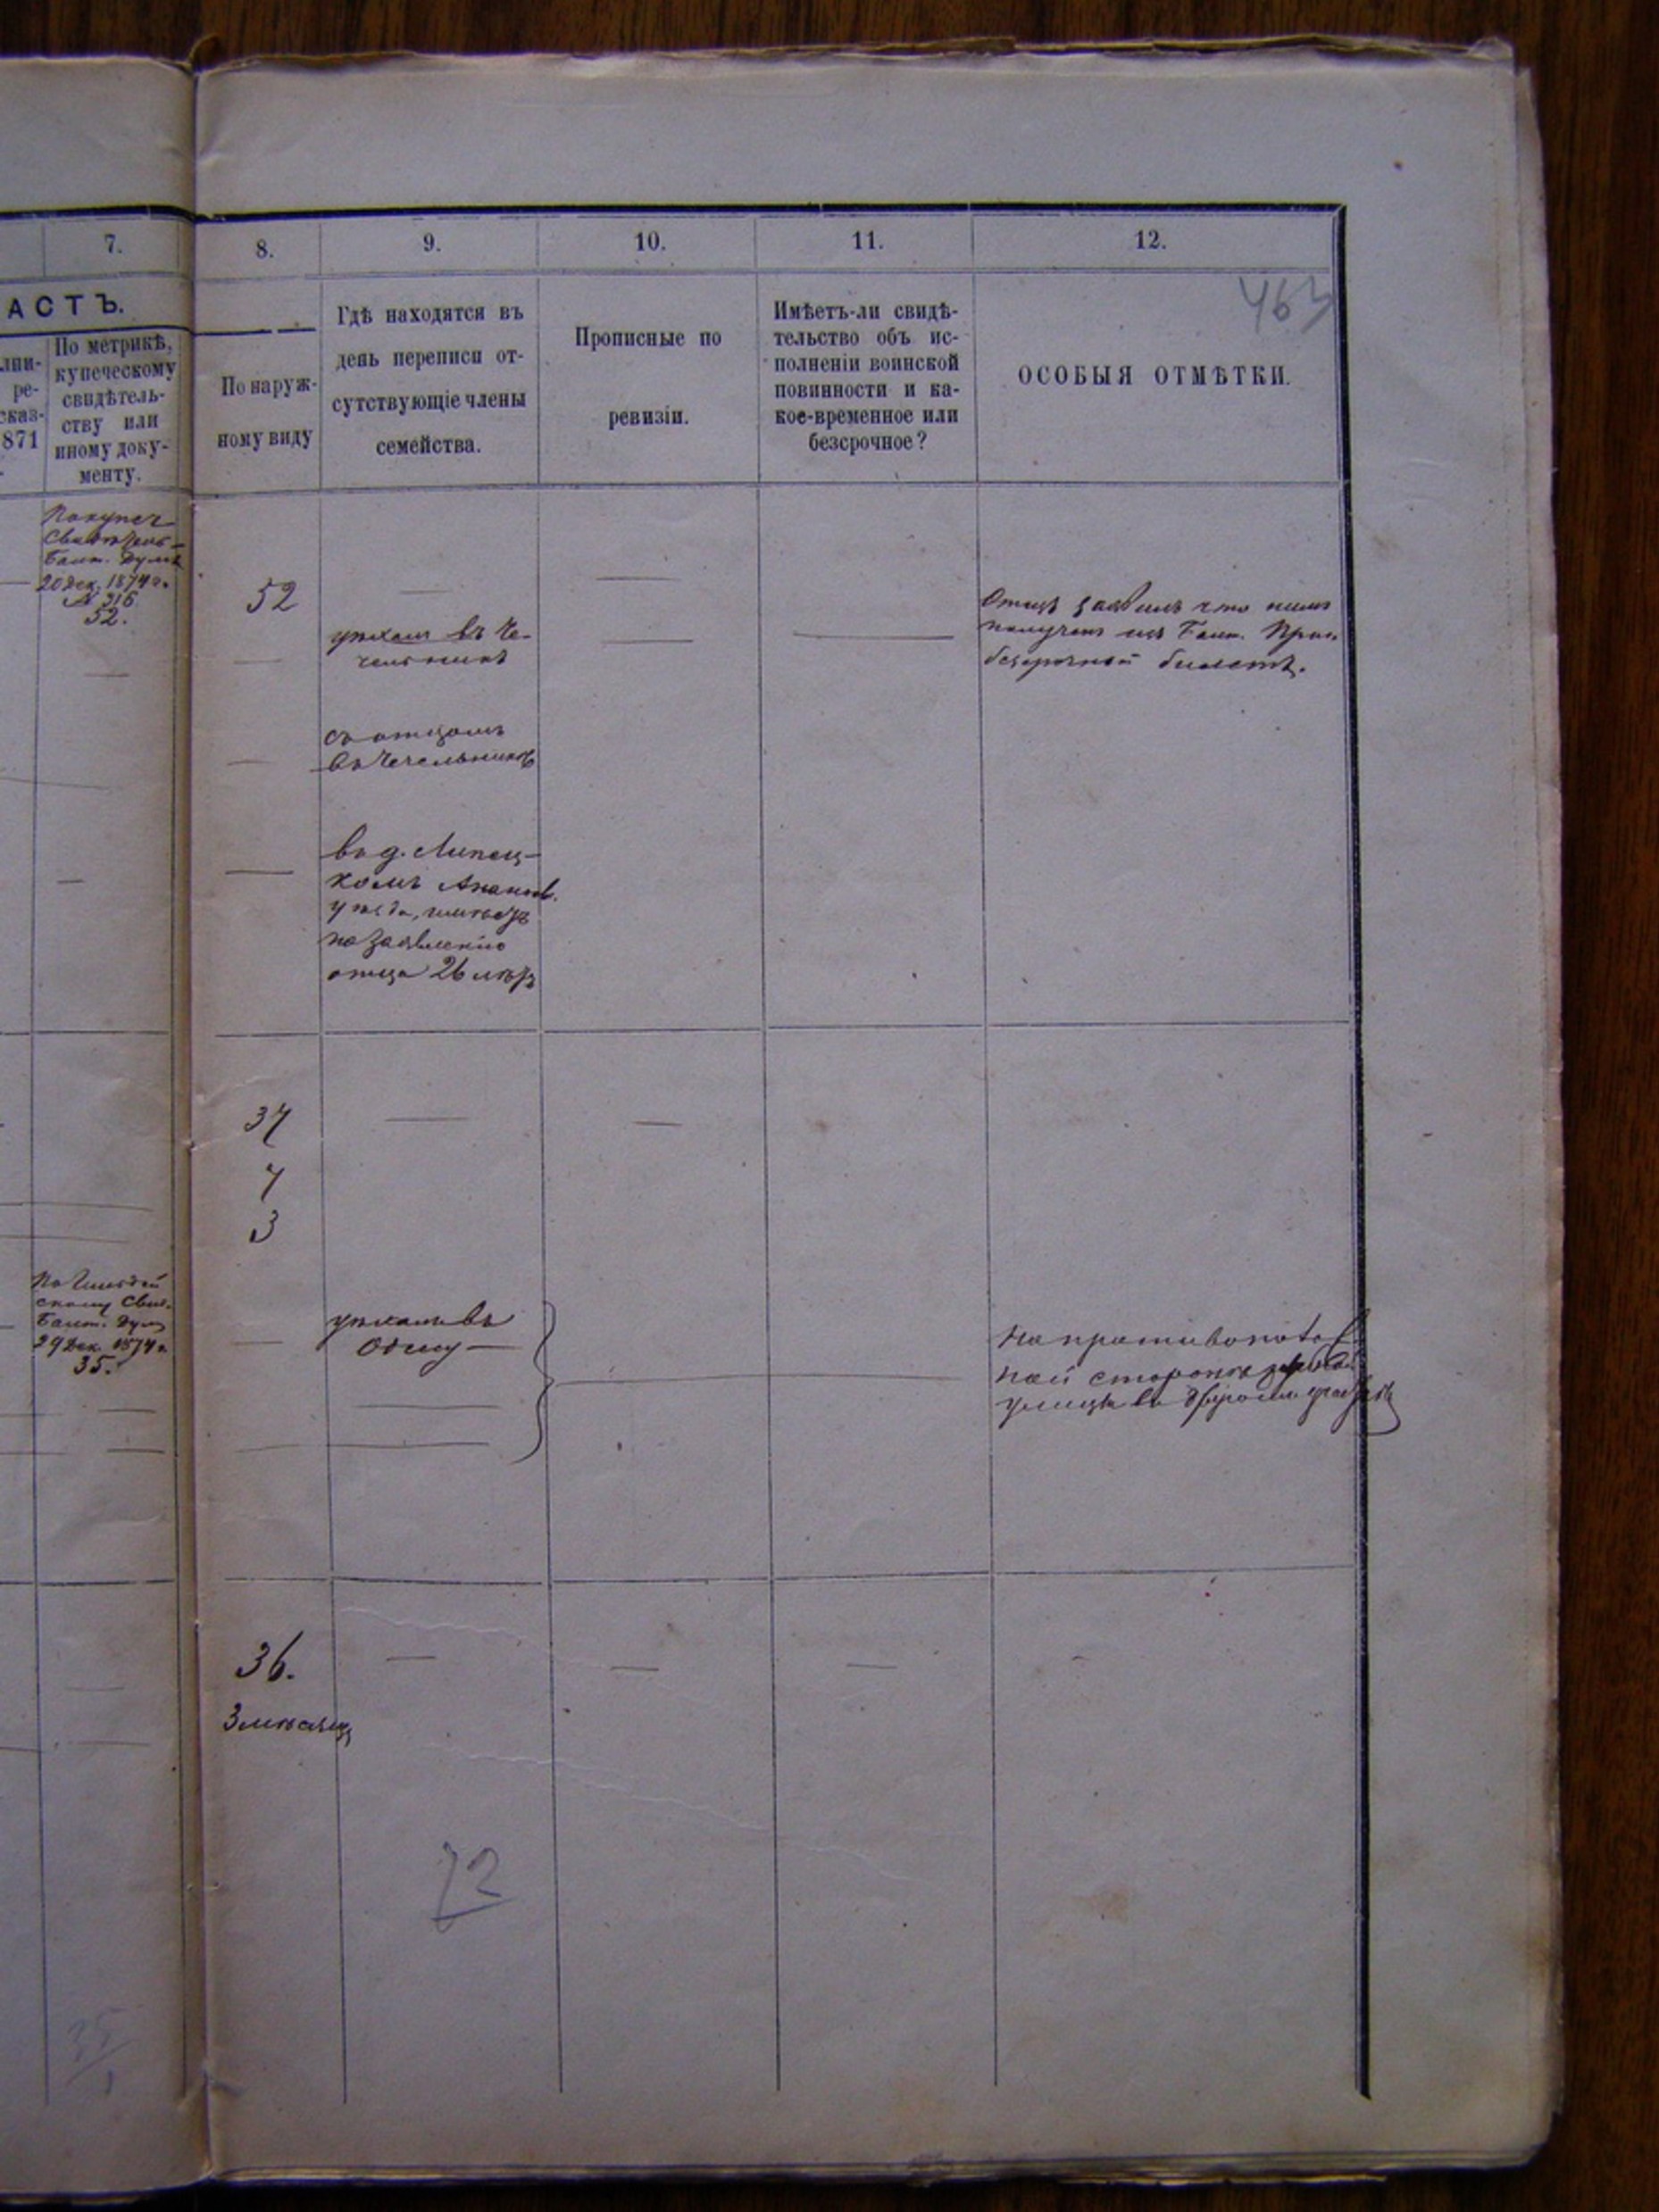 7.
8.
9.
10.
11.
12.
463
АСТЪ.
лни-
ре-
сказ-
871
По метрикѣ,
купеческому
свидѣтель-
ству или
иному доку-
менту.
По наруж-
ному виду
Гдѣ находятся въ
день переписи от-
сутствующіе члены
семейства.
Прописные по
ревизіи.
Имѣетъ-ли свидѣ-
тельство объ ис-
полненіи воинской
повинности и ка-
кое-временное или
безсрочное?
ОСОБЫЯ ОТМѢТКИ.
По купеч
Свидѣтель-
Балт. Думы
20 Дек. 1874 г.
№ 316
52.
52
уѣхалъ въ Че-
чельникъ
Отецъ заявилъ что имъ
полученъ изъ Балт. Прис.
безсрочной билетъ.
съ отцомъ
въ Чечельникѣ
въ д. Липец-
комъ Ананьев.
уѣзда, имѣетъ
по заявленію
отца 26 лѣтъ
37
7
3
Балт. Думы
29 Дек. 1874 г.
35.
уѣхали въ
Одессу
На противополож
ной сторонѣ
улицы во второмъ участкѣ
36.
3 мѣсяца
72
35
1